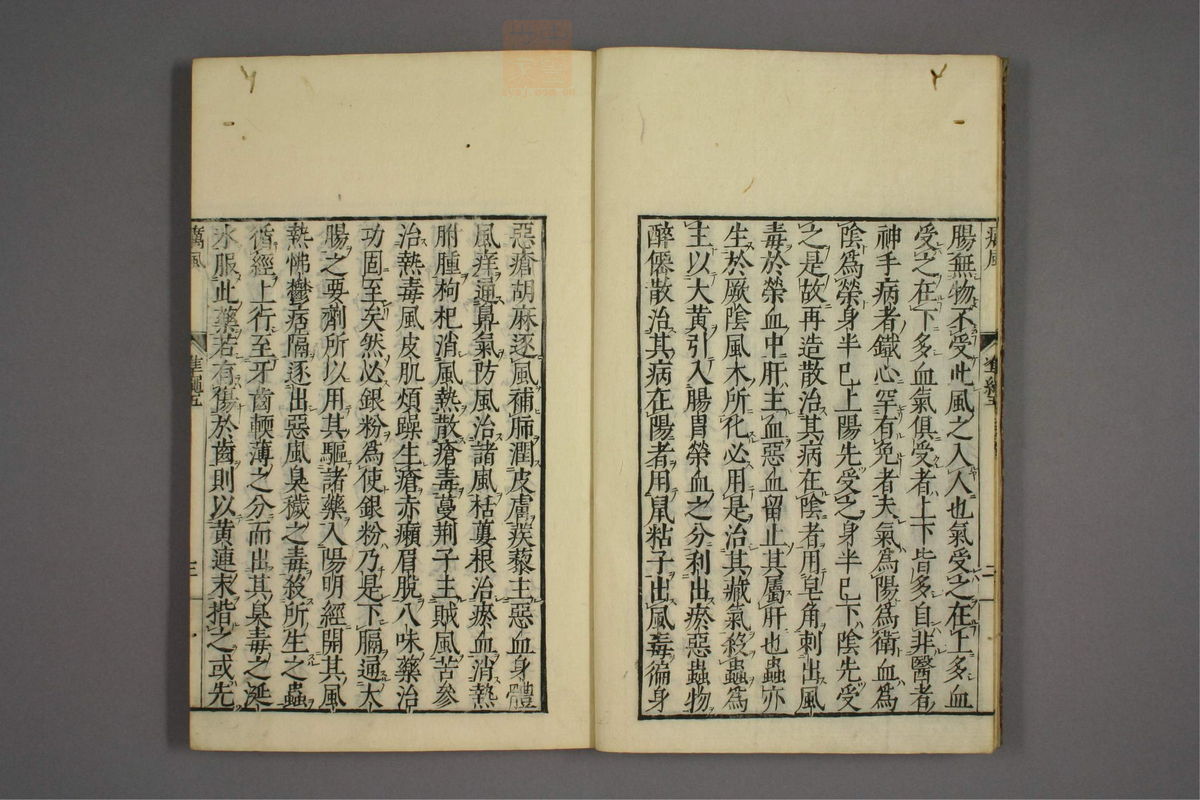 腸無物不受此風之入人也氣受之在上多血
受之在下多血氣俱受者上下皆多自非醫者
神手病者鐵心罕有免者夫氣為陽為衛血為
陰為榮身半已上陽先受之身半已下陰先受
之是故再造散治其病在陰者用皂角刺出風
毒於榮血中肝主血惡血留止其屬肝也蟲亦
生於厥陰風木所化必用是治其臟氣殺蟲為
主以大黃引入腸胃榮血之分利出瘀惡蟲物
醉僊散治其病在陽者用鼠粘子出風毒徧身
惡瘡胡麻逐風補肺潤皮膚蒺藜主惡血身體
風痒通鼻氣防風治諸風栝蔞根治瘀血消熱
胕腫枸杞消風熱散瘡毒蔓荆子主賊風苦參
治熱毒風皮肌煩躁生瘡赤癩眉脫八味藥治
功固至矣然必銀粉為使銀粉乃是下膈通大
腸之要劑所以用其驅諸藥入陽明經開其風
熱怫鬱痞隔逐出惡風臭穢之毒殺所生之蟲
循經上行至牙齒軟薄之分而出其臭毒之涎
水服此藥若有傷於齒則以黃連末揩之或先
癘風
三